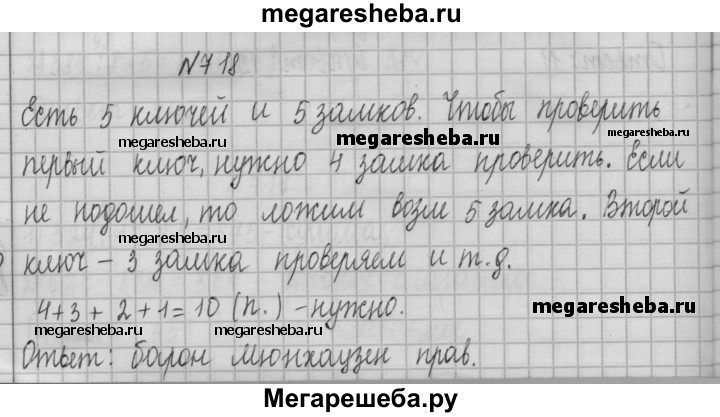 megaresheba.ru
№718
Есть 5 ключей и 5 замков. Чтобы проверить
megaresheba.ru megaresheba.ru megaresheba.ru
первый ключ, нужно 4 замка проверить. Если
не подошел, то ложим возле 5 замка. Второй
megaresheba.ru megaresheba.ru
ключ – 3 замка проверяем и т.д.
4+3+2+1=10 (п.) – нужно.
megaresheba.ru megaresheba.ru
Ответ: барон Мюнхаузен прав.
Мегарешеба.ру